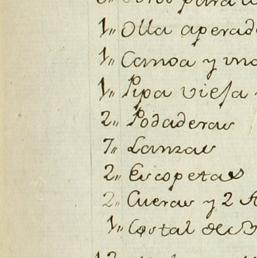 para
1,, Olla aperad
1,, Canoa y una
1,, Pipa vieja
2,, Podaderas
7,, Lanzas
2,, Escopetas
2,, Cueras y 2
1,, Costal de